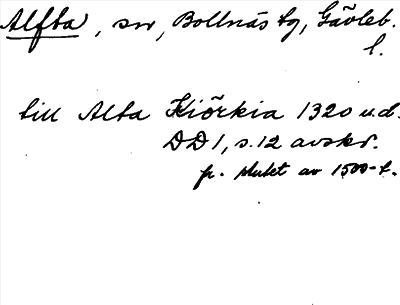 Alfta, sn, Bollnäs tg, Gävleb.
l.
till Alta Kiörkia 1320 u.d.
DD 1, s. 12 avskr.
fr. slutet av 1500-t.